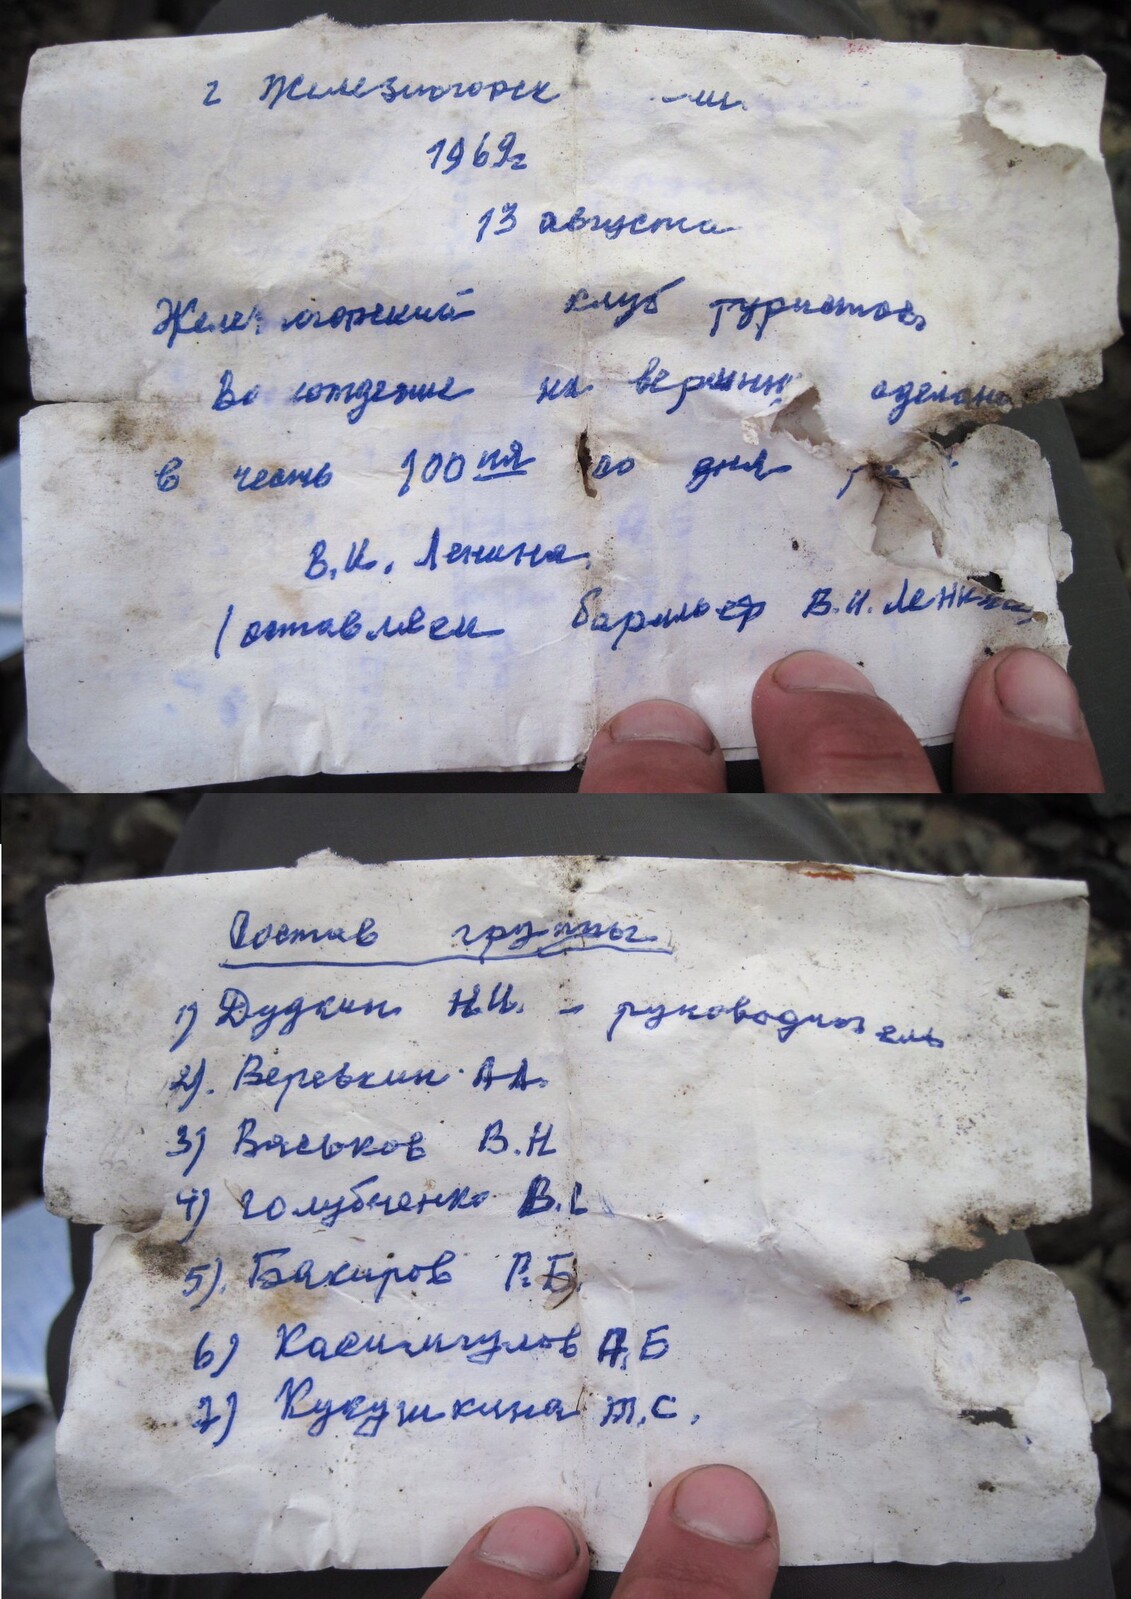 г Железногорск
1969г
13 августа
Железногорский клуб туристов
Восхождение на вершину сделано
в честь 100ия со дня
В.И. Ленина
(оставляем барельеф В.И. Ленина
Состав группы
1) Дудкин Н.И. - руководитель
2). Веревкин А А.
3) Васьков В.Н
4) Голубченко В.
5). Бакиров Р.Б.
6) Касимгулов А.Б
7) Кукушкина Т.С.